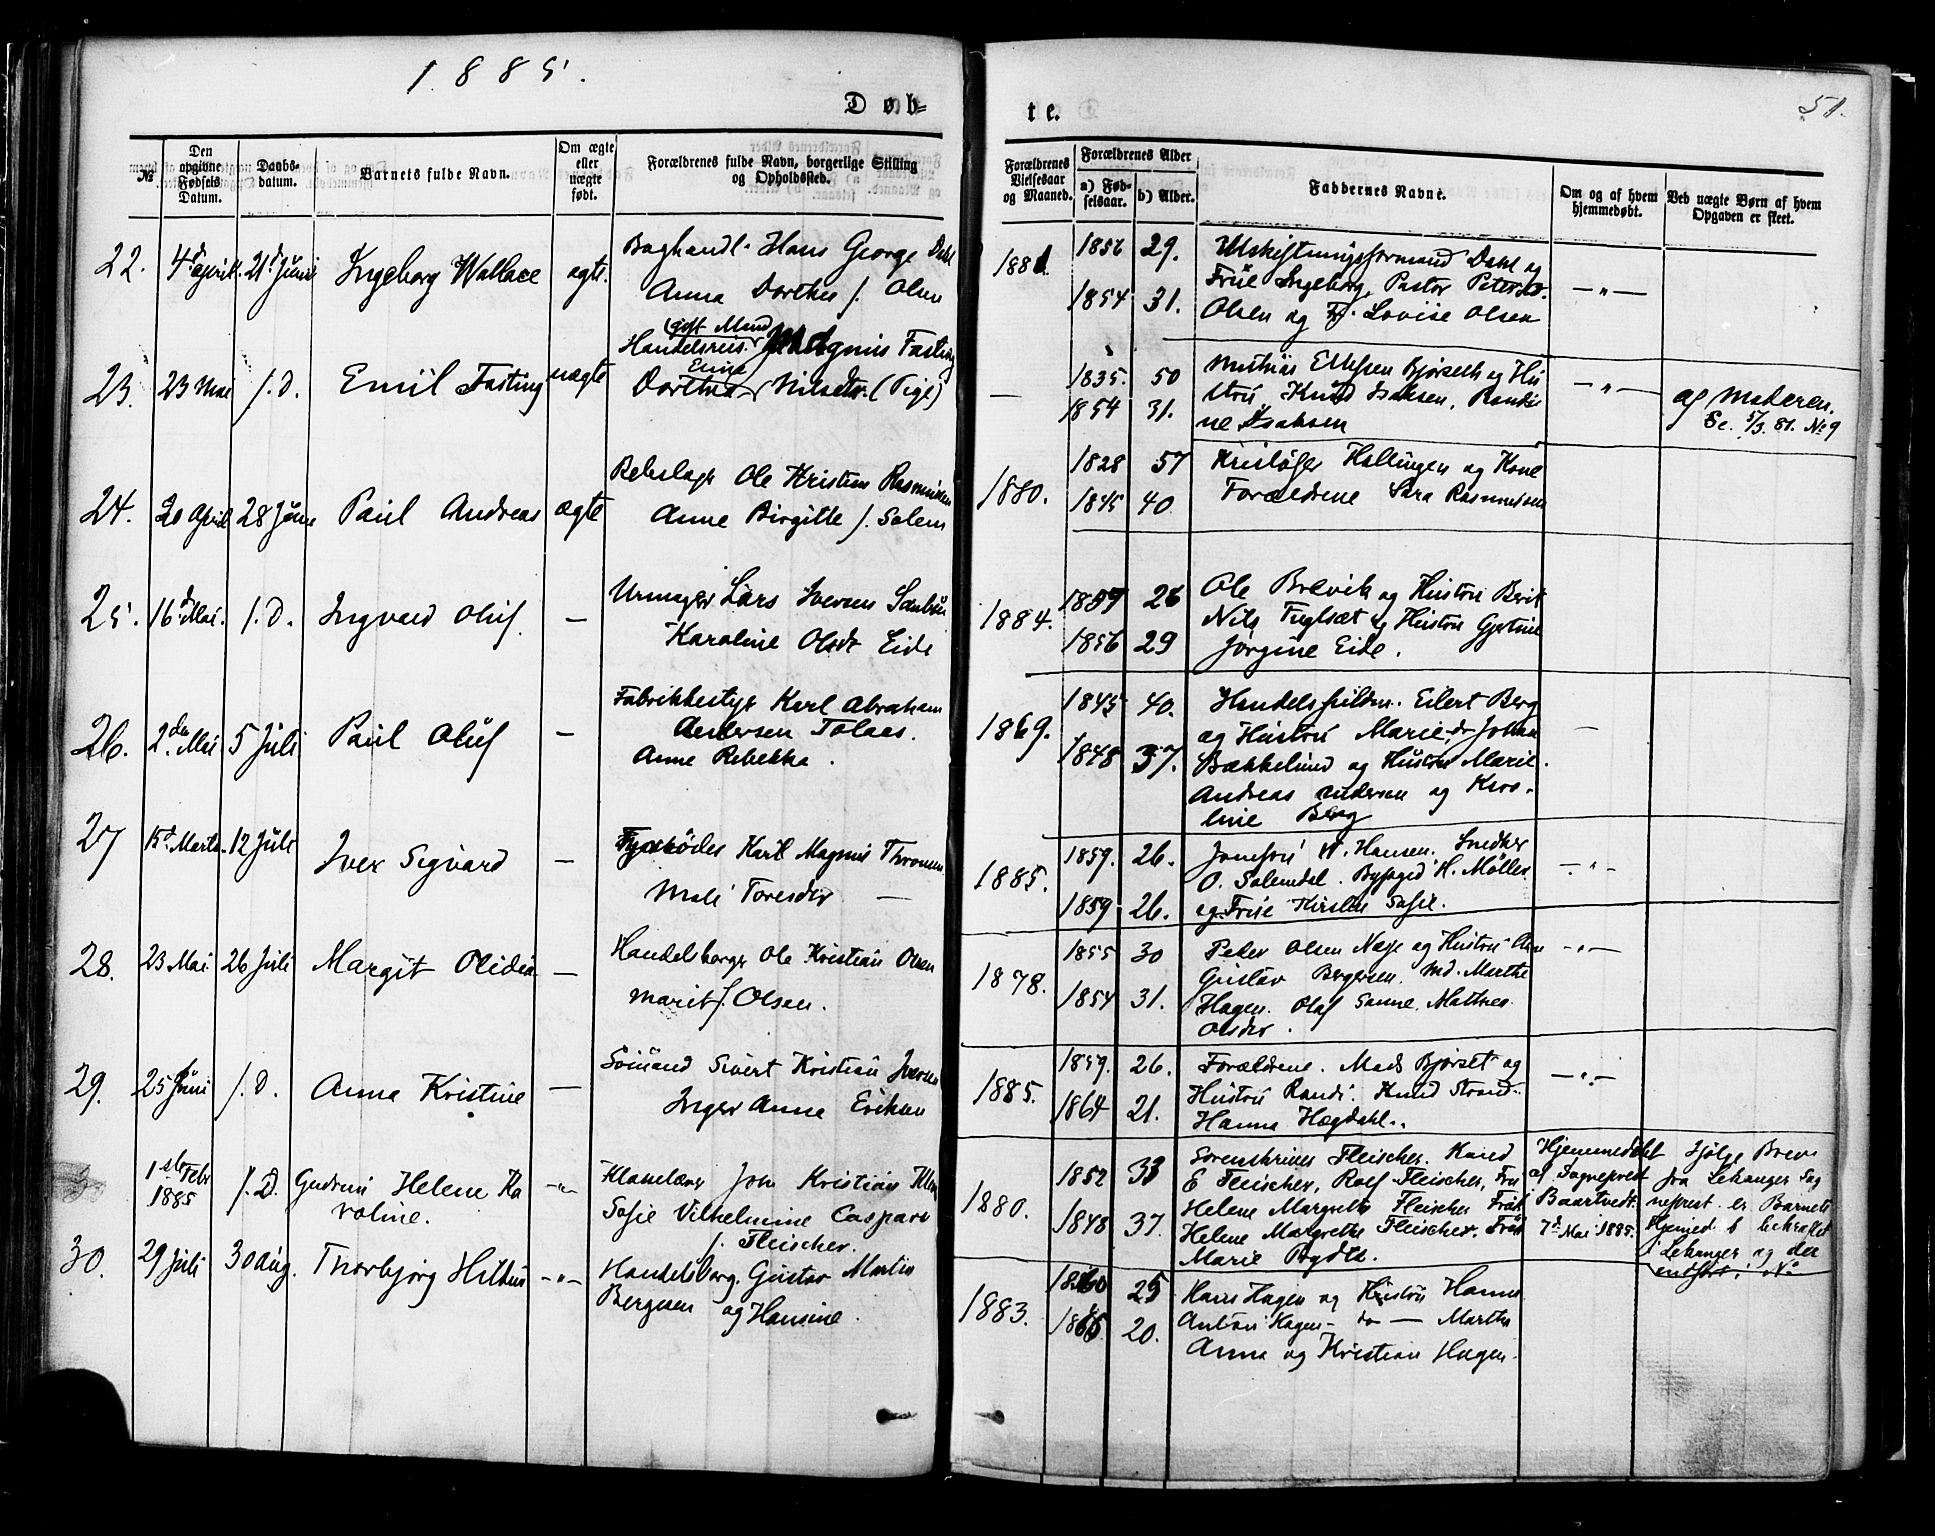 1885.
Døb=
te.
51.
№
Den opgivne Fødsels Datum.
Daabs-datum.
Barnets fulde Navn.
Om ægte eller uægte født.
Forældrenes fulde Navn, borgerlige Stilling og Opholdssted.
Forældrenes Vielsesaar og Maaned.
Forældrenes Alder
a) Fødselsaar.
b) Alder.
Faddernes Navne.
Om og af hvem hjemmedøbt.
Ved uægte Børn af hvem Opgaven er skeet.
22. 4d April. 21d Juni Ingeborg Wallace ægte. Boghandl. Hans George Dahl
Anna Dorthea f. Olsen
1881. 1856 29. Udskiftningsformand Dahl og
1854 31. Frue Ingeborg, Pastor
Olsen og Fr. Lovise Olsen
—"—
23. 23 Mai s. D. Emil Fasting uægte
(gift Mand)
Handelsreis. Magnus Fasting
Emma
Dorthea Nilsdtr. (Pige)
— 1835. 50 Mathias Ellefsen Bjørseth og Hu
1854 31. stru, Knud Isaksen, Randi
ne Isaksen
—"—
af Moderen.
№ 9
24. 20 April 28 Juni Paul Andreas ægte Rebslagr Ole Kristian Rasmussen
Anne Birgitte f. Solem
1880. 1828 57 Kristofer Hallingen og Kone
1845 40 Forældrene Sara Rasmussen
25. 16d Mai. s. D. Ingvard Oluf. — Urmager Lars Iversen
Karoline Olsdt Eide
1884. 1859 26 Ole Brevik og Hustru Berit
1856 29 Nils Fuglsæt og Hustru Gjertine
Jørgine Eide.
26. 2den Mai 5 Juli Paul Oluf — Fabrikbestyr Karl Abraham
Andersen Tolaas.
Anne Rebekka.
1869. 1845 40. Eilert Berg
1848 37. og Hustru Marie, do Johan
Bækkelund og Hustru Marie.
Andreas Andersen og Karo-
line Berg
—
27 15d Marts. 12 Juli Iver Sigvard — Karl Magnus
Mali Toresdtr —
1885. 1859. 26. Jomfru N. Hansen. Snedker
O. Solemdal. H. Møller
1859 26. og Frue Kirsten Sofie.
—"—
28. 23 Mai 26 Juli Margit Olidia — Handelsborger Ole Kristian Olsen
Marit f. Olsen.
1878. 1855 30 Peder Olsen Næs og Hustru Ane
Gustav Bergersen. Md. Marthe
1854 31. Hagen. Olaf Sanne. Mathea
Olsdtr.
—"—
29. 25 Juni s. D. Anna Kristine — Sømand Sivert Kristian Iversen
Inger Anna Eriksen
1885. 1859. 26. Forældrene. Mads Bjørset og
1864 21. Hustru Randi. Knud Strand.
Hanna Hægdahl.
—"—
1ste Febr 1885 s. D. Gudrun Helene Ka
roline. —"— Jon Kristian
Sofie Vilhelmine Caspara
f. Fleischer.
1880. 1852 33 Sorenskriver Fleischer. Knud
E Fleischer, Rolf Fleischer, Fru
1848 37. Helene Margrethe Fleischer Frøk
Helene Margrethe Fleischer. Frøk
Marie Bydtz.
Hjemmedøbt
af Sognepræst
Baartvedt.
7d Mai 1885.
Ifølge Brev
fra Lekanger Sog
nepræst er Barnets
Hjemmed b bekræftet
i Lekanger og der
indført i №
30. 29 Juli 30 Aug. Thorbjørg —"— Handelsborg. Gustav Martin
Bergesen og Hansine.
1883. 1860 25 Hans Hagen og Hustru Hanna
1865 20. Anton Hagen – do — Martha
Anna og Kristian Hagen.